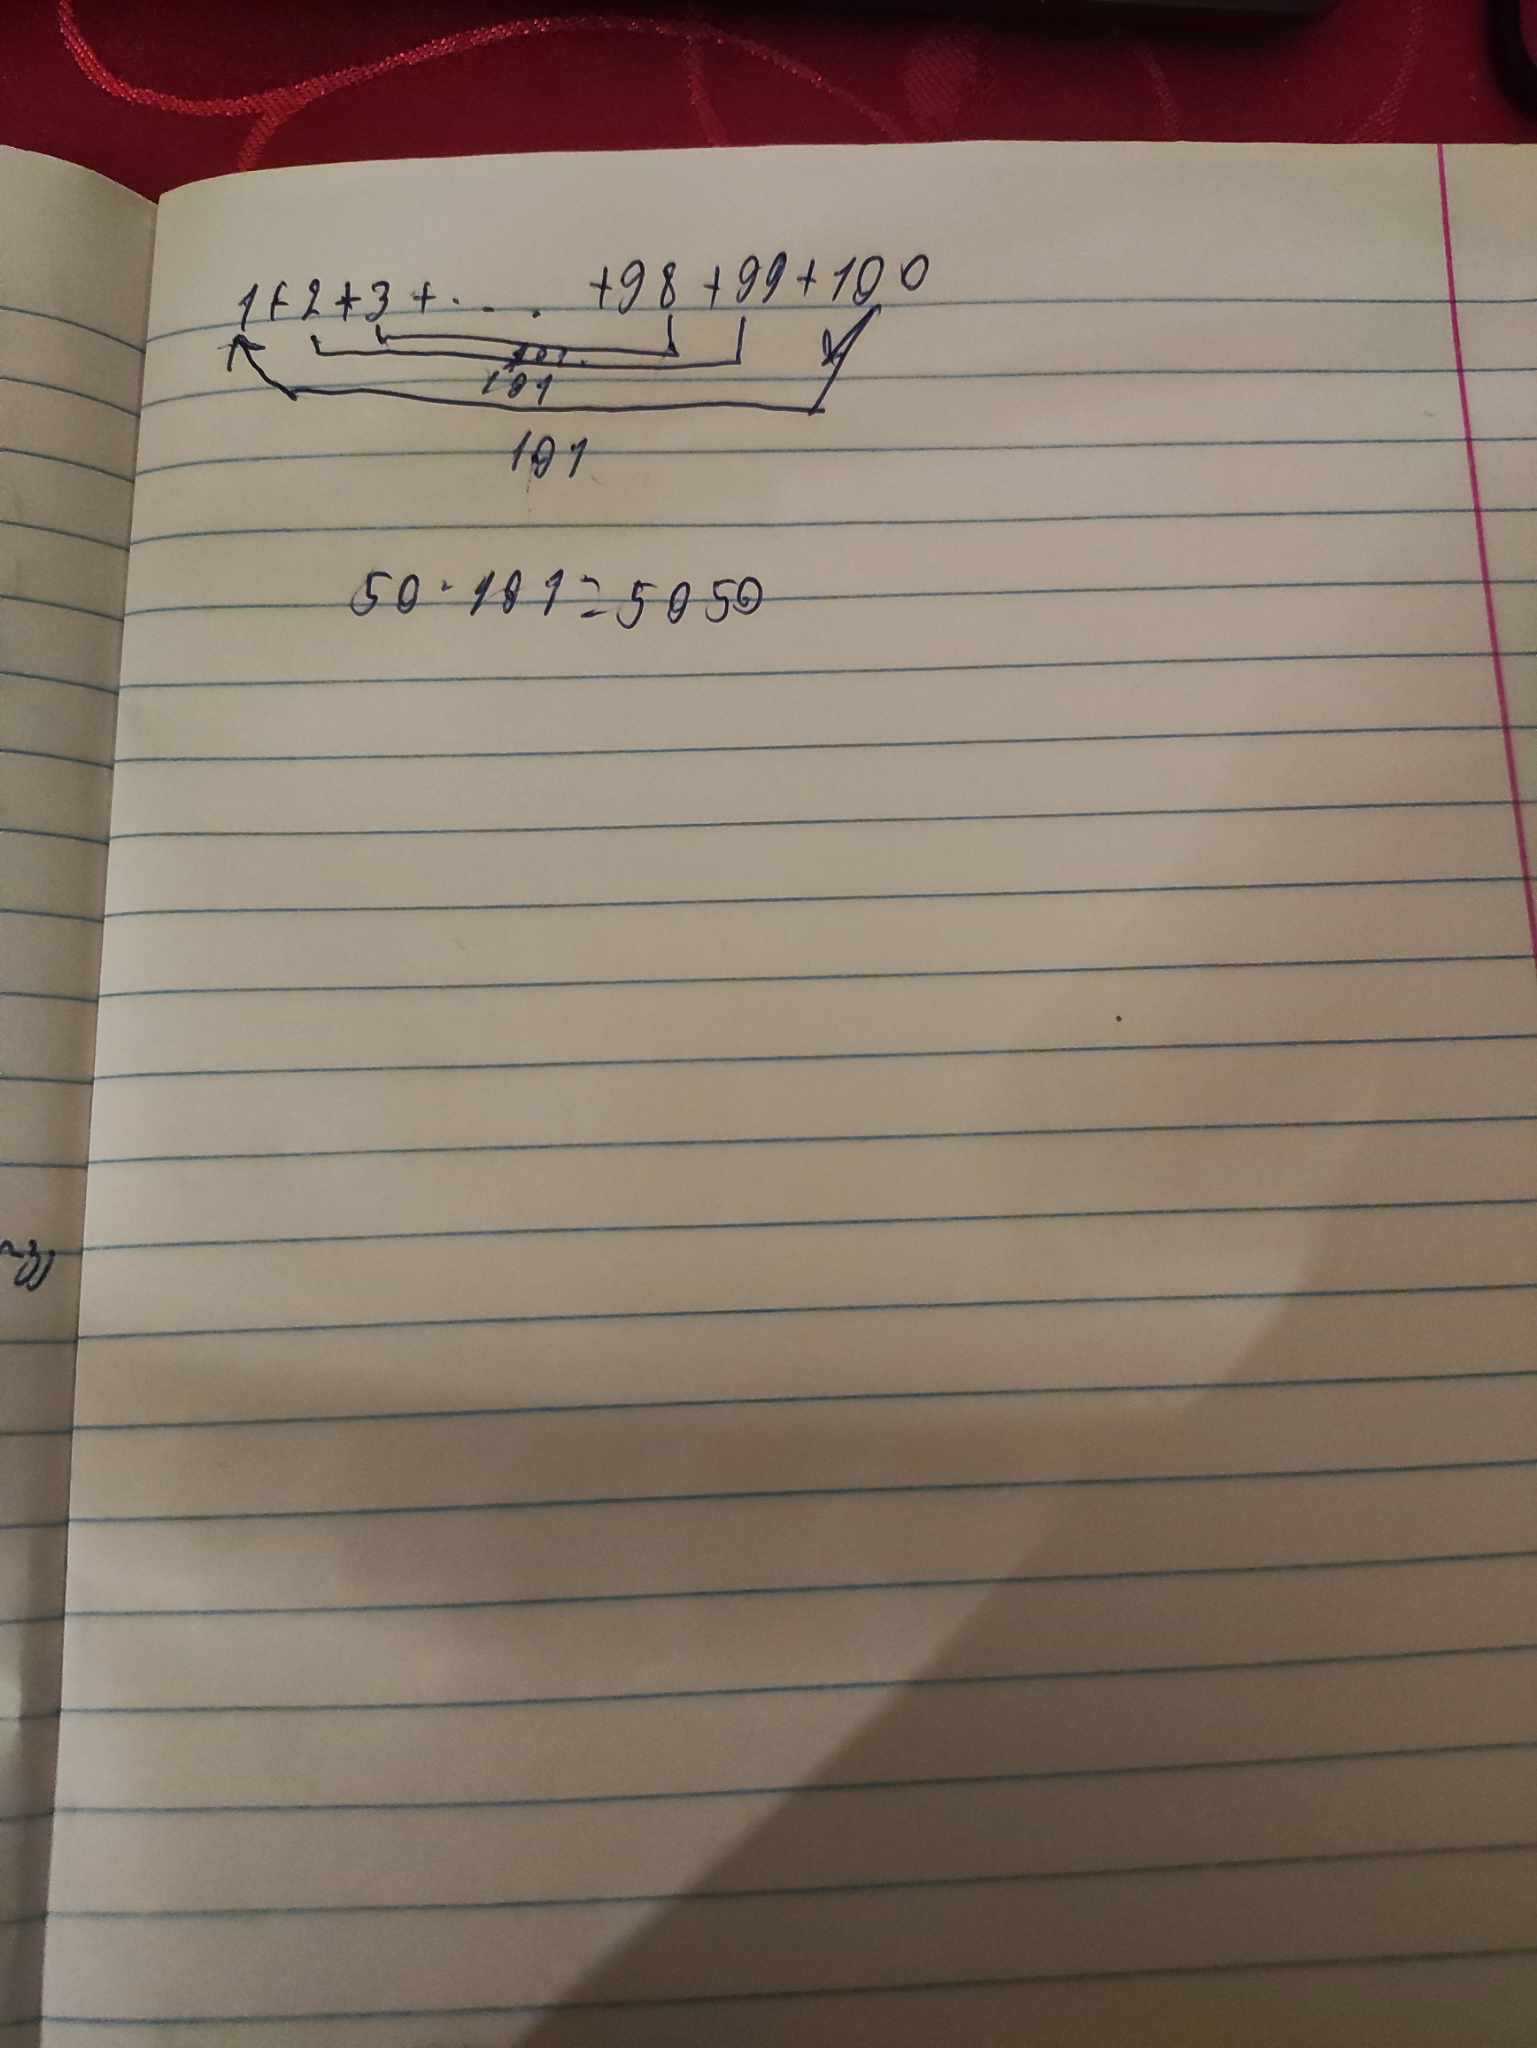 1+2+3+.... +98+99+100
101
101
101
50·101=5050